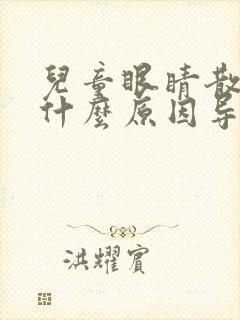 兒童眼睛散
什麼原因导
洪耀賓